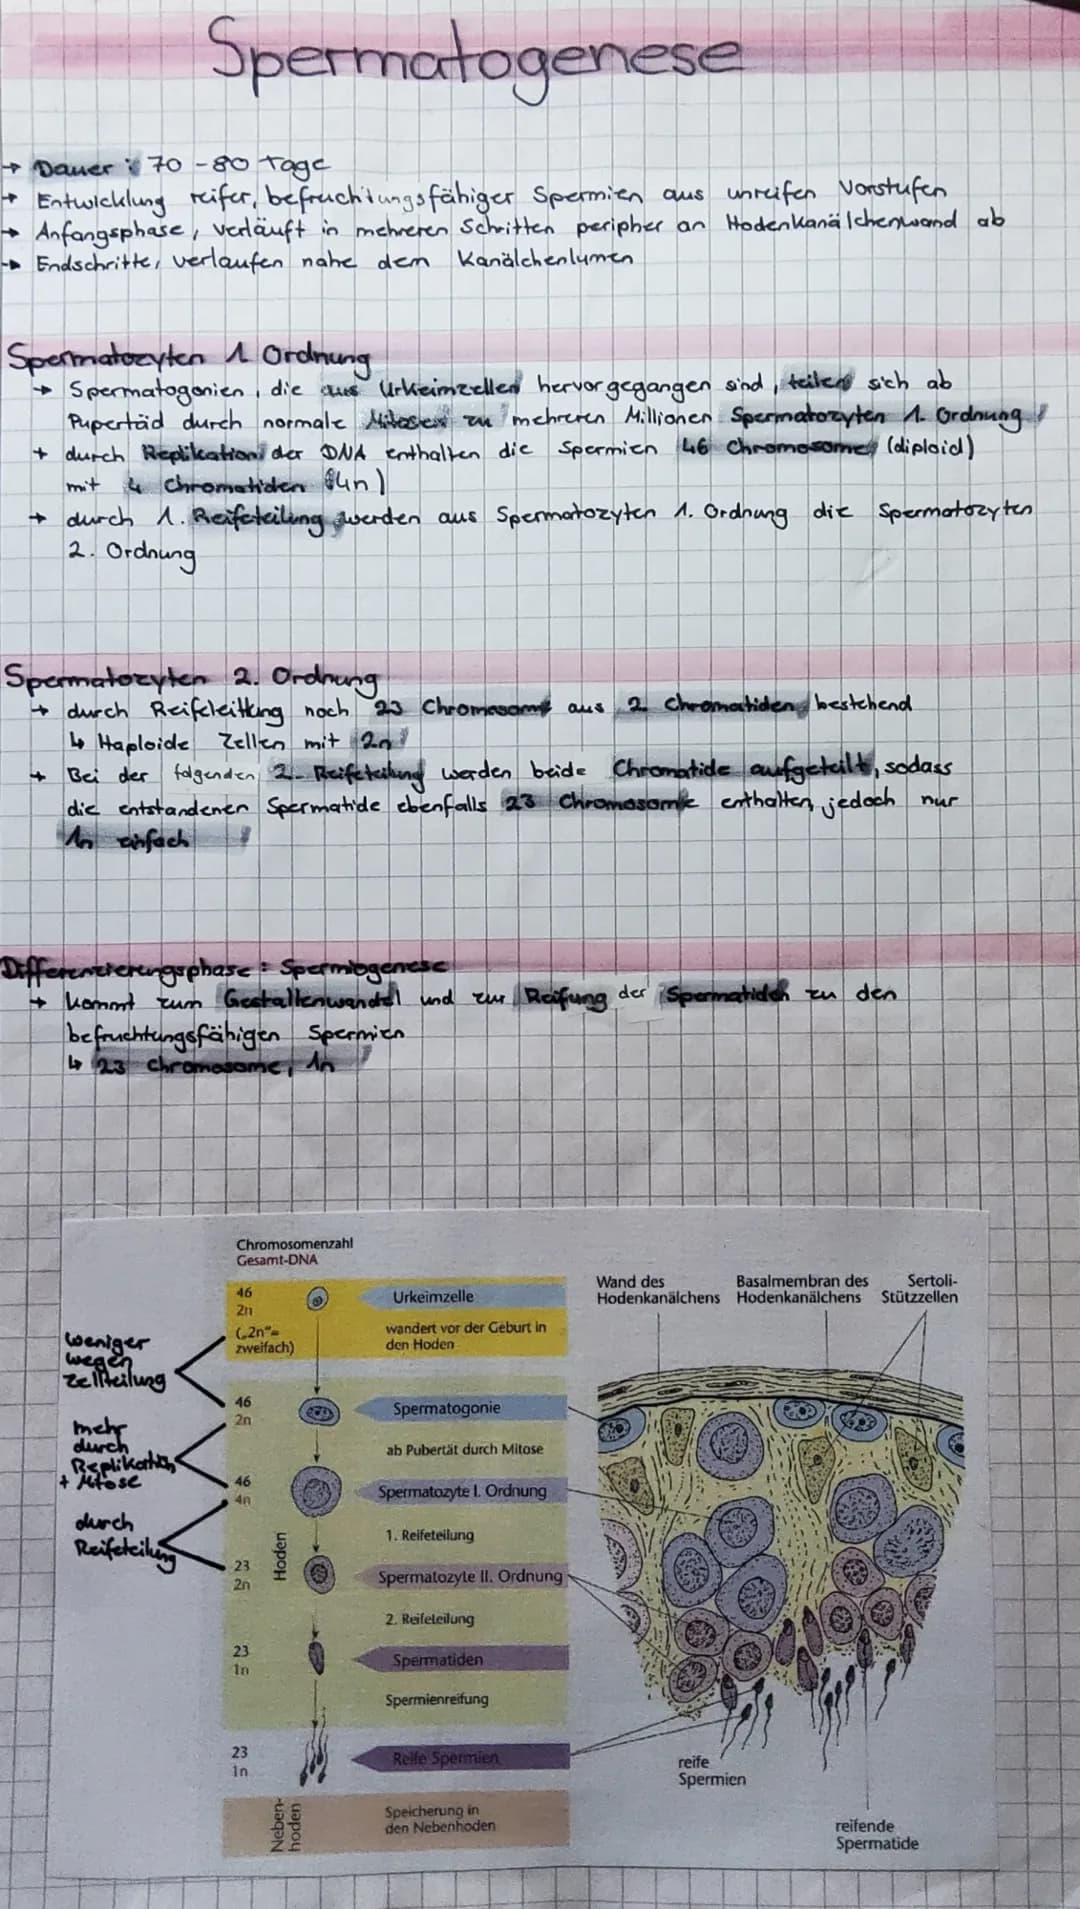 Spermatogenese
→ Dauer : 70 - 80 Tage
→ Entwicklung reifer, befruchtungsfähiger Spermien aus unreifen Vorstufen
→ Anfangsphase, verläuft in mehreren Schritten peripher an Hodenkanälchenwand ab
→ Endschritte, verlaufen nahe dem Kanälchenlumen
Spermatozyten 1 Ordnung
→ Spermatogonien, die aus Urkeimzellen hervorgegangen sind, teilen sich ab
Pupertäd durch normale Mitosen zu mehreren Millionen Spermatozyten 1. Ordnung
→ durch Replikation der DNA enthalten die Spermien 46 Chromosomen (diploid)
mit 4 Chromatiden (4n)
→ durch 1. Reifeteilung werden aus Spermatozyten 1. Ordnung die Spermatozyten
2. Ordnung
Spermatozyten 2. Ordnung
→ durch noch 23 Chromosome aus 2 Chromatiden bestehend
↳ Haploide Zellen mit 2n
→ Bei der folgenden 2. Reifeteilung werden beide Chromatide aufgeteilt, sodass
die entstandenen Spermatide ebenfalls 23 Chromosome enthalten, jedoch nur
1n einfach
Differenzierungsphase : Spermiogenese
→ kommt zum Gestaltenwandel und zur Reifung der Spermatiden zu den
befruchtungsfähigen Spermien
↳ 23 Chromosome, 1n
Chromosomenzahl
Gesamt-DNA
46
2n
(„2n"=
zweifach)
Urkeimzelle
wandert vor der Geburt in
den Hoden
weniger
wegen
Zellteilung
46
2n
Spermatogonie
mehr
durch
Replikation
+ Mitose
ab Pubertät durch Mitose
46
4n
Spermatozyte I. Ordnung
durch
Reifeteilung
1. Reifeteilung
Hoden
23
2n
Spermatozyte II. Ordnung
2. Reifeteilung
23
1n
Spermatiden
Spermienreifung
23
1n
Reife Spermien
Neben-
hoden
Speicherung in
den Nebenhoden
Wand des
Hodenkanälchens
Basalmembran des
Hodenkanälchens
Sertoli-
Stützzellen
reife
Spermien
reifende
Spermatide